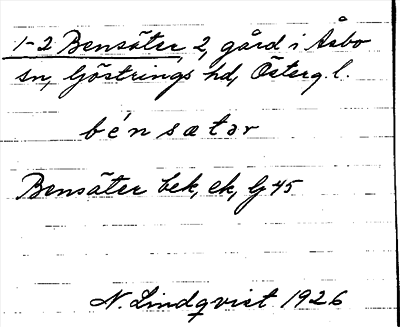 1-2 Bensäter, 2, gård i Åsbo
sn, Göstrings hd, Österg. l.
bénsætər
Bensäter bek, ek, G 45
N. Lindqvist 1926